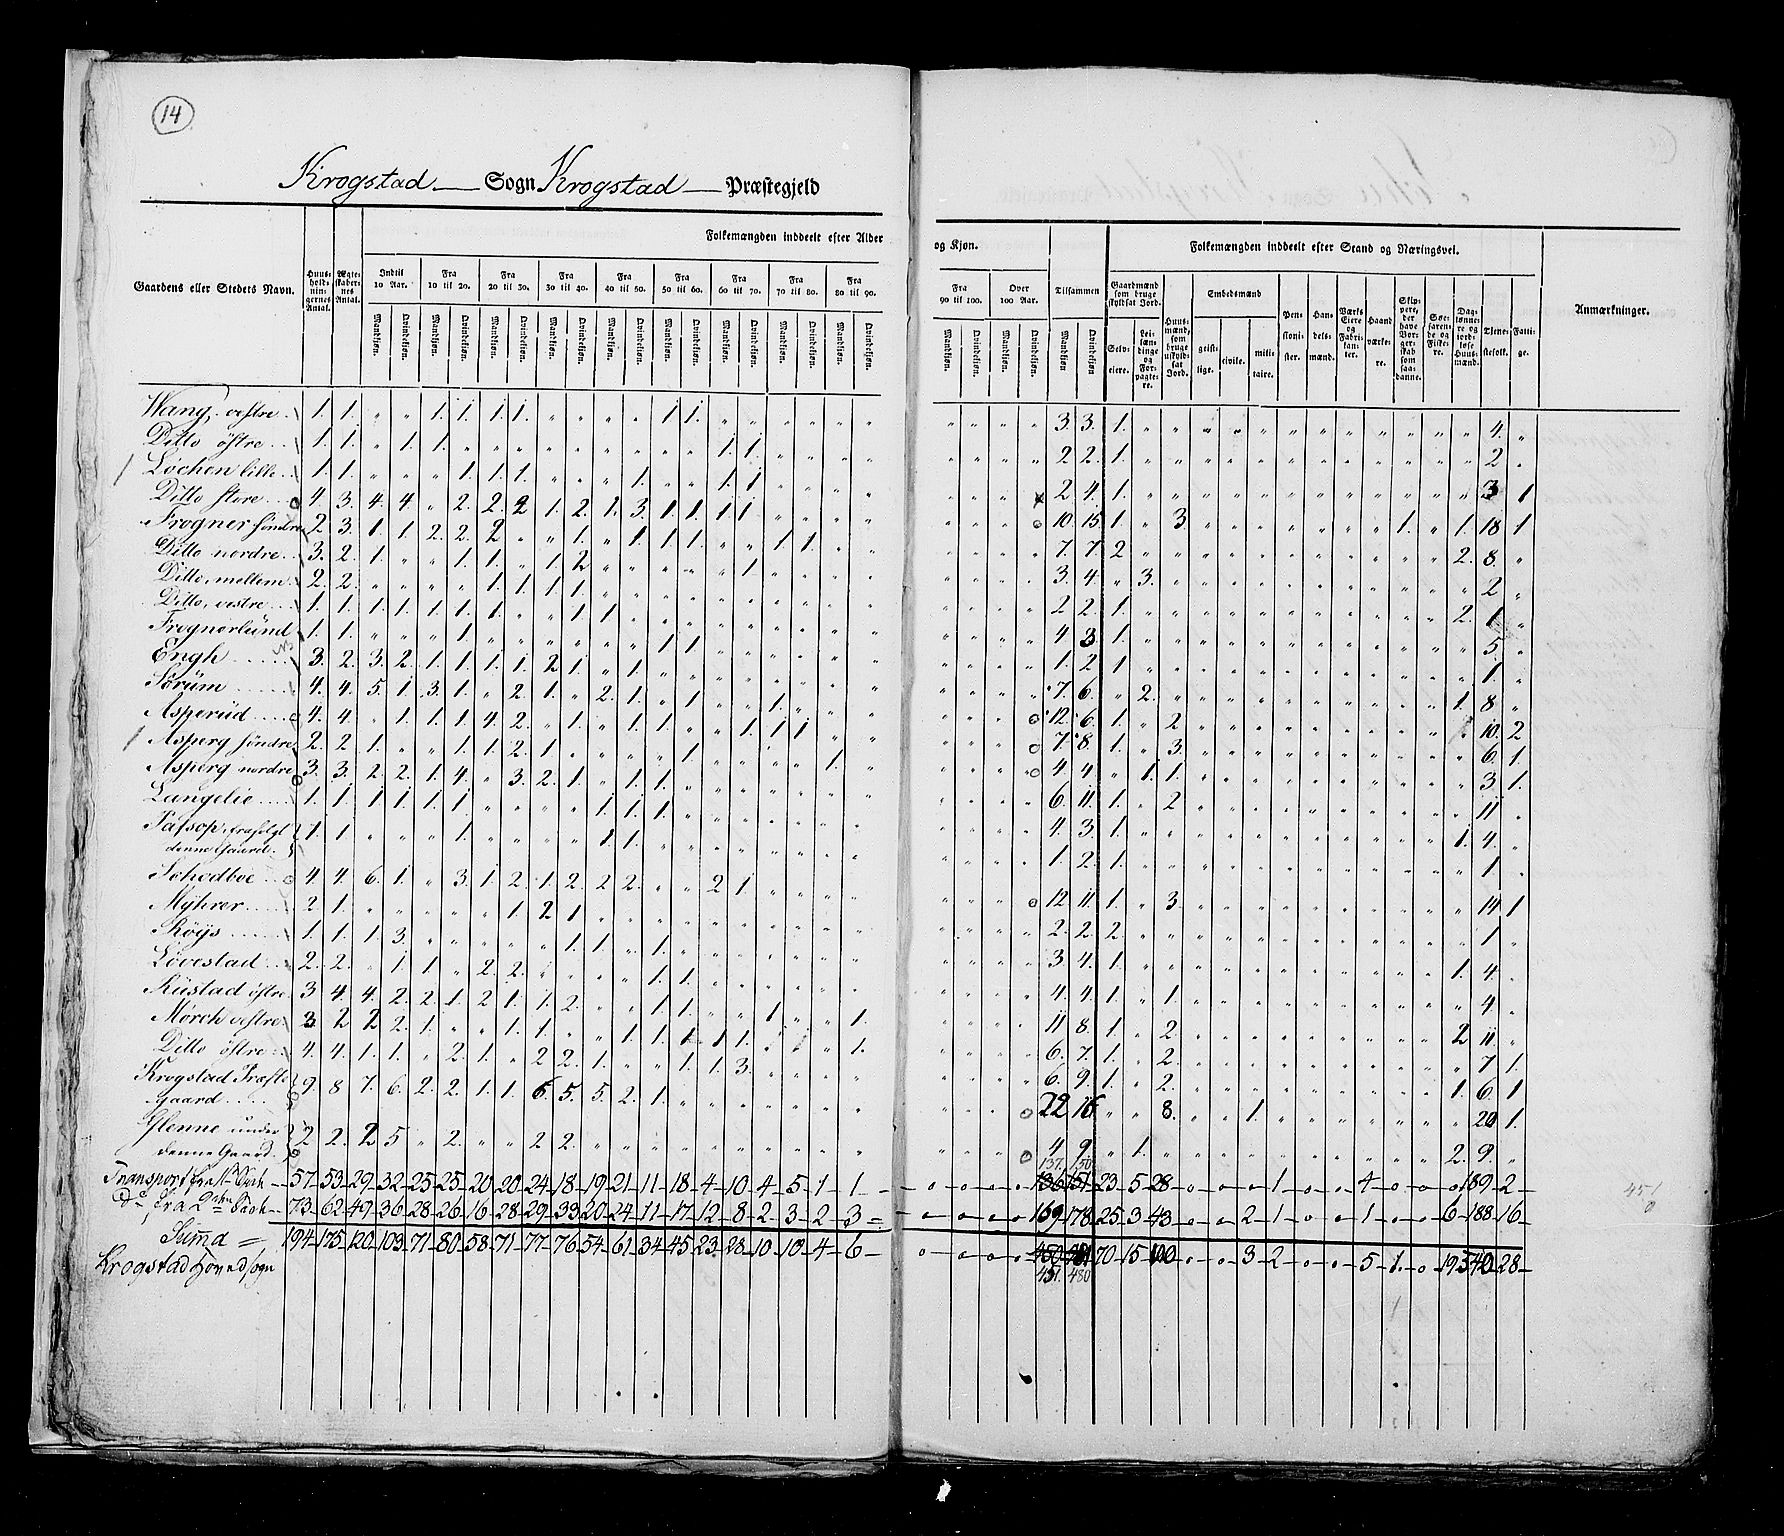 14
Krogstad Sogn Krogstad Præstegjeld
Folkemængden inddeelt efter Alder og Kjøn.
Folkemængden inddeelt efter Stand og Næringsvei.
Gaardens eller Stedets Navn.
Huusholdningernes Antal.
Ægteskabernes Antal.
Indtil 10 Aar.
Fra 10 til 20.
Fra 20 til 30.
Fra 30 til 40.
Fra 40 til 50.
Fra 50 til 60.
Fra 60 til 70.
Fra 70 til 80.
Fra 80 til 90.
Fra 90 til 100.
Over 100 Aar.
Tilsammen
Mandkjøn. Qvindekjøn.
Gaardmænd som bruge skyldsat Jord.
Selveiere.
Leilændinge og Forpagtere.
Huusmænd, som bruge uskyldsat Jord.
Embedsmænd
geistlige. civile. militaire.
Pensionister.
Handelsmænd.
Værks Eiere og Fabrikanter.
Haandværkere.
Skippere, der have Borgerskab som saadanne.
Søefarende og Fiskere.
Daglønnere og jordløse Huusmænd.
Tjenestefolk.
Fattige.
Anmærkninger.
Wang, vestre 1. 1. 1. 1. 1. 1. 1. 1. 3. 3. 1. 4.
Ditto östre 1. 1. 1. 1. 1. 1. 2 2. 1. 2
Löchen lille 1. 1. 1. 1. 1. 1. 1. 1. 2 4. 1. 3 1
Ditto store 4. 3. 4. 4 2. 2. 2 1. 2. 1. 3. 1. 1. 1. 1 10. 15. 1. 3 1. 1. 18 1
Frogner söndre 2. 3. 1. 1. 2. 2. 2 1. 1. 1. 1. 1. 1. 7. 7. 2 2. 8.
Ditto nordre 3. 2. 1. 1. 1. 1. 2 1. 3. 4. 3. 2
Ditto, mellem 2. 2. 1. 1. 1. 1. 2 2. 1. 2. 1
Ditto, vestre 1. 1. 1. 1. 1. 1. 1. 1. 1 4. 3. 1. 5.
Frognerlund 1. 1. 1. 1. 1. 1. 2 1 1.
Engh 3. 2. 3. 2. 1. 1. 1. 1. 2 1. 1. 7. 6. 2. 1. 8
Sörüm 4. 4. 5. 1. 3. 1. 2. 1. 2. 1. 1. 1. 12. 6. 1. 2 10. 2
Asperud 4. 4. 1. 1. 1. 4. 2. 1. 1. 1. 1. 1 7. 8. 1. 3. 6. 1.
Asperg söndre 2. 2 1. 1. 1. 2. 1 1. 1. 4. 4. 1. 1. 3 1.
Asperg nordre 3. 3. 2. 2. 1. 4. 3. 2. 1. 1. 1. 6. 11. 1. 2 11
Langelie 1. 1. 1 1. 1. 1. 1. 1. 1. 4. 3. 1. 1. 4.
denne Gaard. 1. 1 1. 1. 1. 1. 2. 1. 1
Schodboe 4. 4. 6. 1. 3. 1. 2. 1. 2. 2 2. 2 1 12 11. 1. 3. 14 1
Myhrer 2 1. 1. 2 1 2. 2. 2 1
Röys 1. 1. 1. 3. 1. 1. 1. 3 4. 1. 1. 4.
Lövestad 2. 2. 1. 1. 2. 2. 1. 1. 4. 4. 1. 1. 4.
Rustad östre 3 4. 4. 2. 2. 1. 2 1. 1. 2. 1. 1. 1 1. 11 8. 1. 2 2 11.
Mörch vestre 3 2 2 2. 1. 1. 1. 1. 1. 1. 1. 1 1. 6. 7. 1. 2. 7 1.
Ditto östre 4. 4. 1. 1. 2. 1. 2 2. 1. 1. 1. 3. 6. 9. 1. 2 1. 6. 1
Krogstad Præste Gaard 9 8 7. 6. 2. 2. 1. 1. 6. 5. 5. 2. 1. 22 16 8. 1. 20 1.
Glenne under denne Gaard. 2 2. 2 5 2. 2 2. 4 9. 1. 2. 9.
137. 150
Transport fra 57 53 29 32 25 25 20 20 24 18 19 21 11 18 4 10 4 5 1 1 o o o o 136 151 23 5 28 o o o 1 o o 4 o o o 189 2
Do fra 2den 73 62 49 36 28 26 16 28 29 33 20 24 11 17 12 8 2 3 2 3 o o o o 169 178 25 3 43 o o 2 1 o o 1 o o 6 188 16
Suma 194 175 120 103 71 80 58 71 77 76 54 61 34 45 23 28 10 10 4 6 o o o o 450 481 70 15 100 o o 3 2 o o 5 1. o 19 540 28
Krogstad Hovedsogn 457. 480